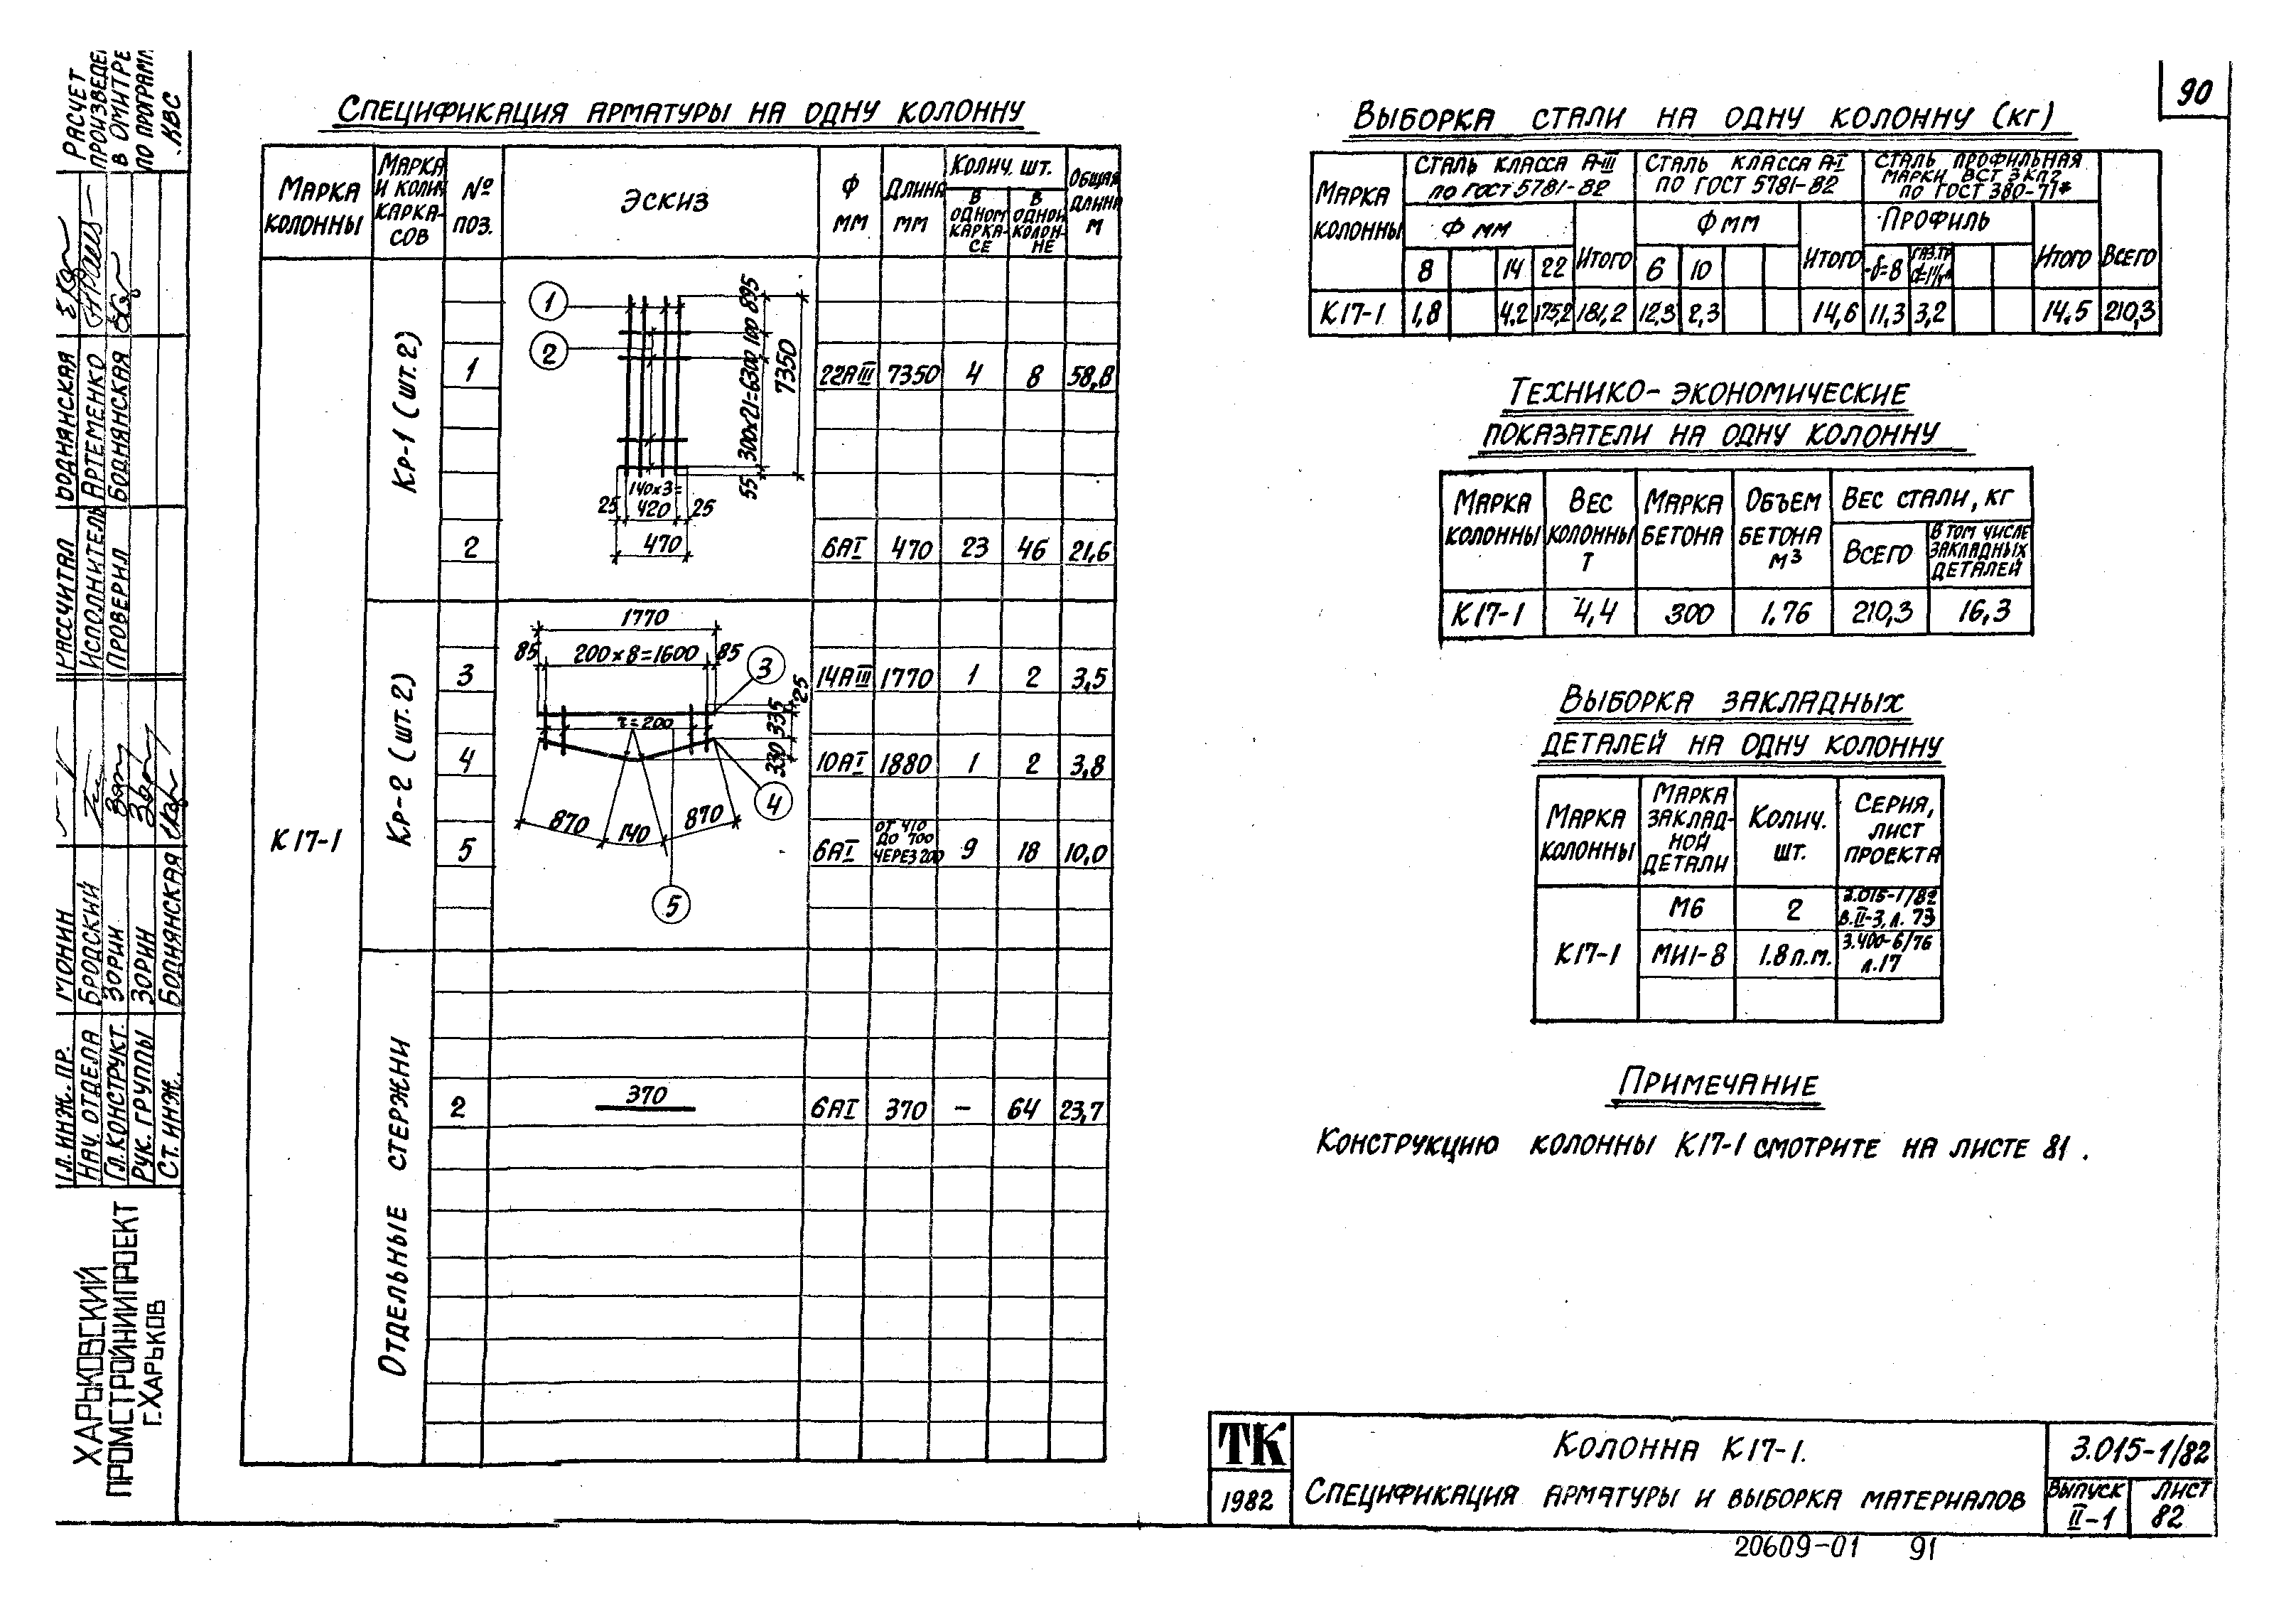 90
Спецификация арматуры на одну колонну
Марка колонны
Марка и колич. каркасов
№ поз.
Эскиз
Ф мм
Длина мм
Колич. шт.
в одном каркасе
в одной колонне
Общая длина м
К17-1
Кр-1 (шт. 2)
1 22АIII 7350 4 8 58,8
2 6АI 470 23 46 21,6
1
2
895
100
300х21=6300
55
7350
25
140х3=
420
25
470
Кр-2 (шт. 2)
3 14АIII 1770 1 2 3,5
4 10АI 1880 1 2 3,8
5 6АI от 410 до 700 через 200 9 18 10,0
1770
85 200х8=1600 85
3
25
335
330
r=200
4
870 140 870
5
Отдельные стержни
2 370 6АI 370 — 64 23,7
Выборка стали на одну колонну (кг)
Марка колонны
Сталь класса А-III по ГОСТ 5781-82
Сталь класса А-I по ГОСТ 5781-82
Сталь профильная марки ВСт 3 кп2 по ГОСТ 380-71*
Всего
Ф мм
Итого
Ф мм
Итого
Профиль
Итого
8 14 22 6 10 -δ=8 газ.тр.
К17-1 1,8 4,2 175,2 181,2 12,3 2,3 14,6 11,3 3,2 14.5 210,3
Технико-экономические
показатели на одну колонну
Марка колонны
Вес колонны т
Марка бетона
Объем бетона м³
Вес стали, кг
Всего
в том числе закладных деталей
К17-1 4,4 300 1.76 210,3 16,3
Выборка закладных
деталей на одну колонну
Марка колонны
Марка закладной детали
Колич. шт.
Серия, лист проекта
К17-1
М6 2 3.015-1/82 в.II-3, л. 73
МИ1-8 1.8 п.м. 3.400-6/76 л.17
Примечание
Конструкцию колонны К17-1 смотрите на листе 81.
ТК
1982
Колонна К17-1.
Спецификация арматуры и выборка материалов
3.015-1/82
Выпуск II-1
Лист 82
20609-01 91
Расчет
произведен
в ОМИТРЕ
по программ
КВС
Рассчитал Воднянская
Исполнитель Артеменко
Проверил Воднянская
Гл. инж. пр. Монин
Нач. отдела Бродский
Гл. конструкт. Зорин
Рук. группы Зорин
Ст. инж. Воднянская
Харьковский
Промстройниипроект
г. Харьков